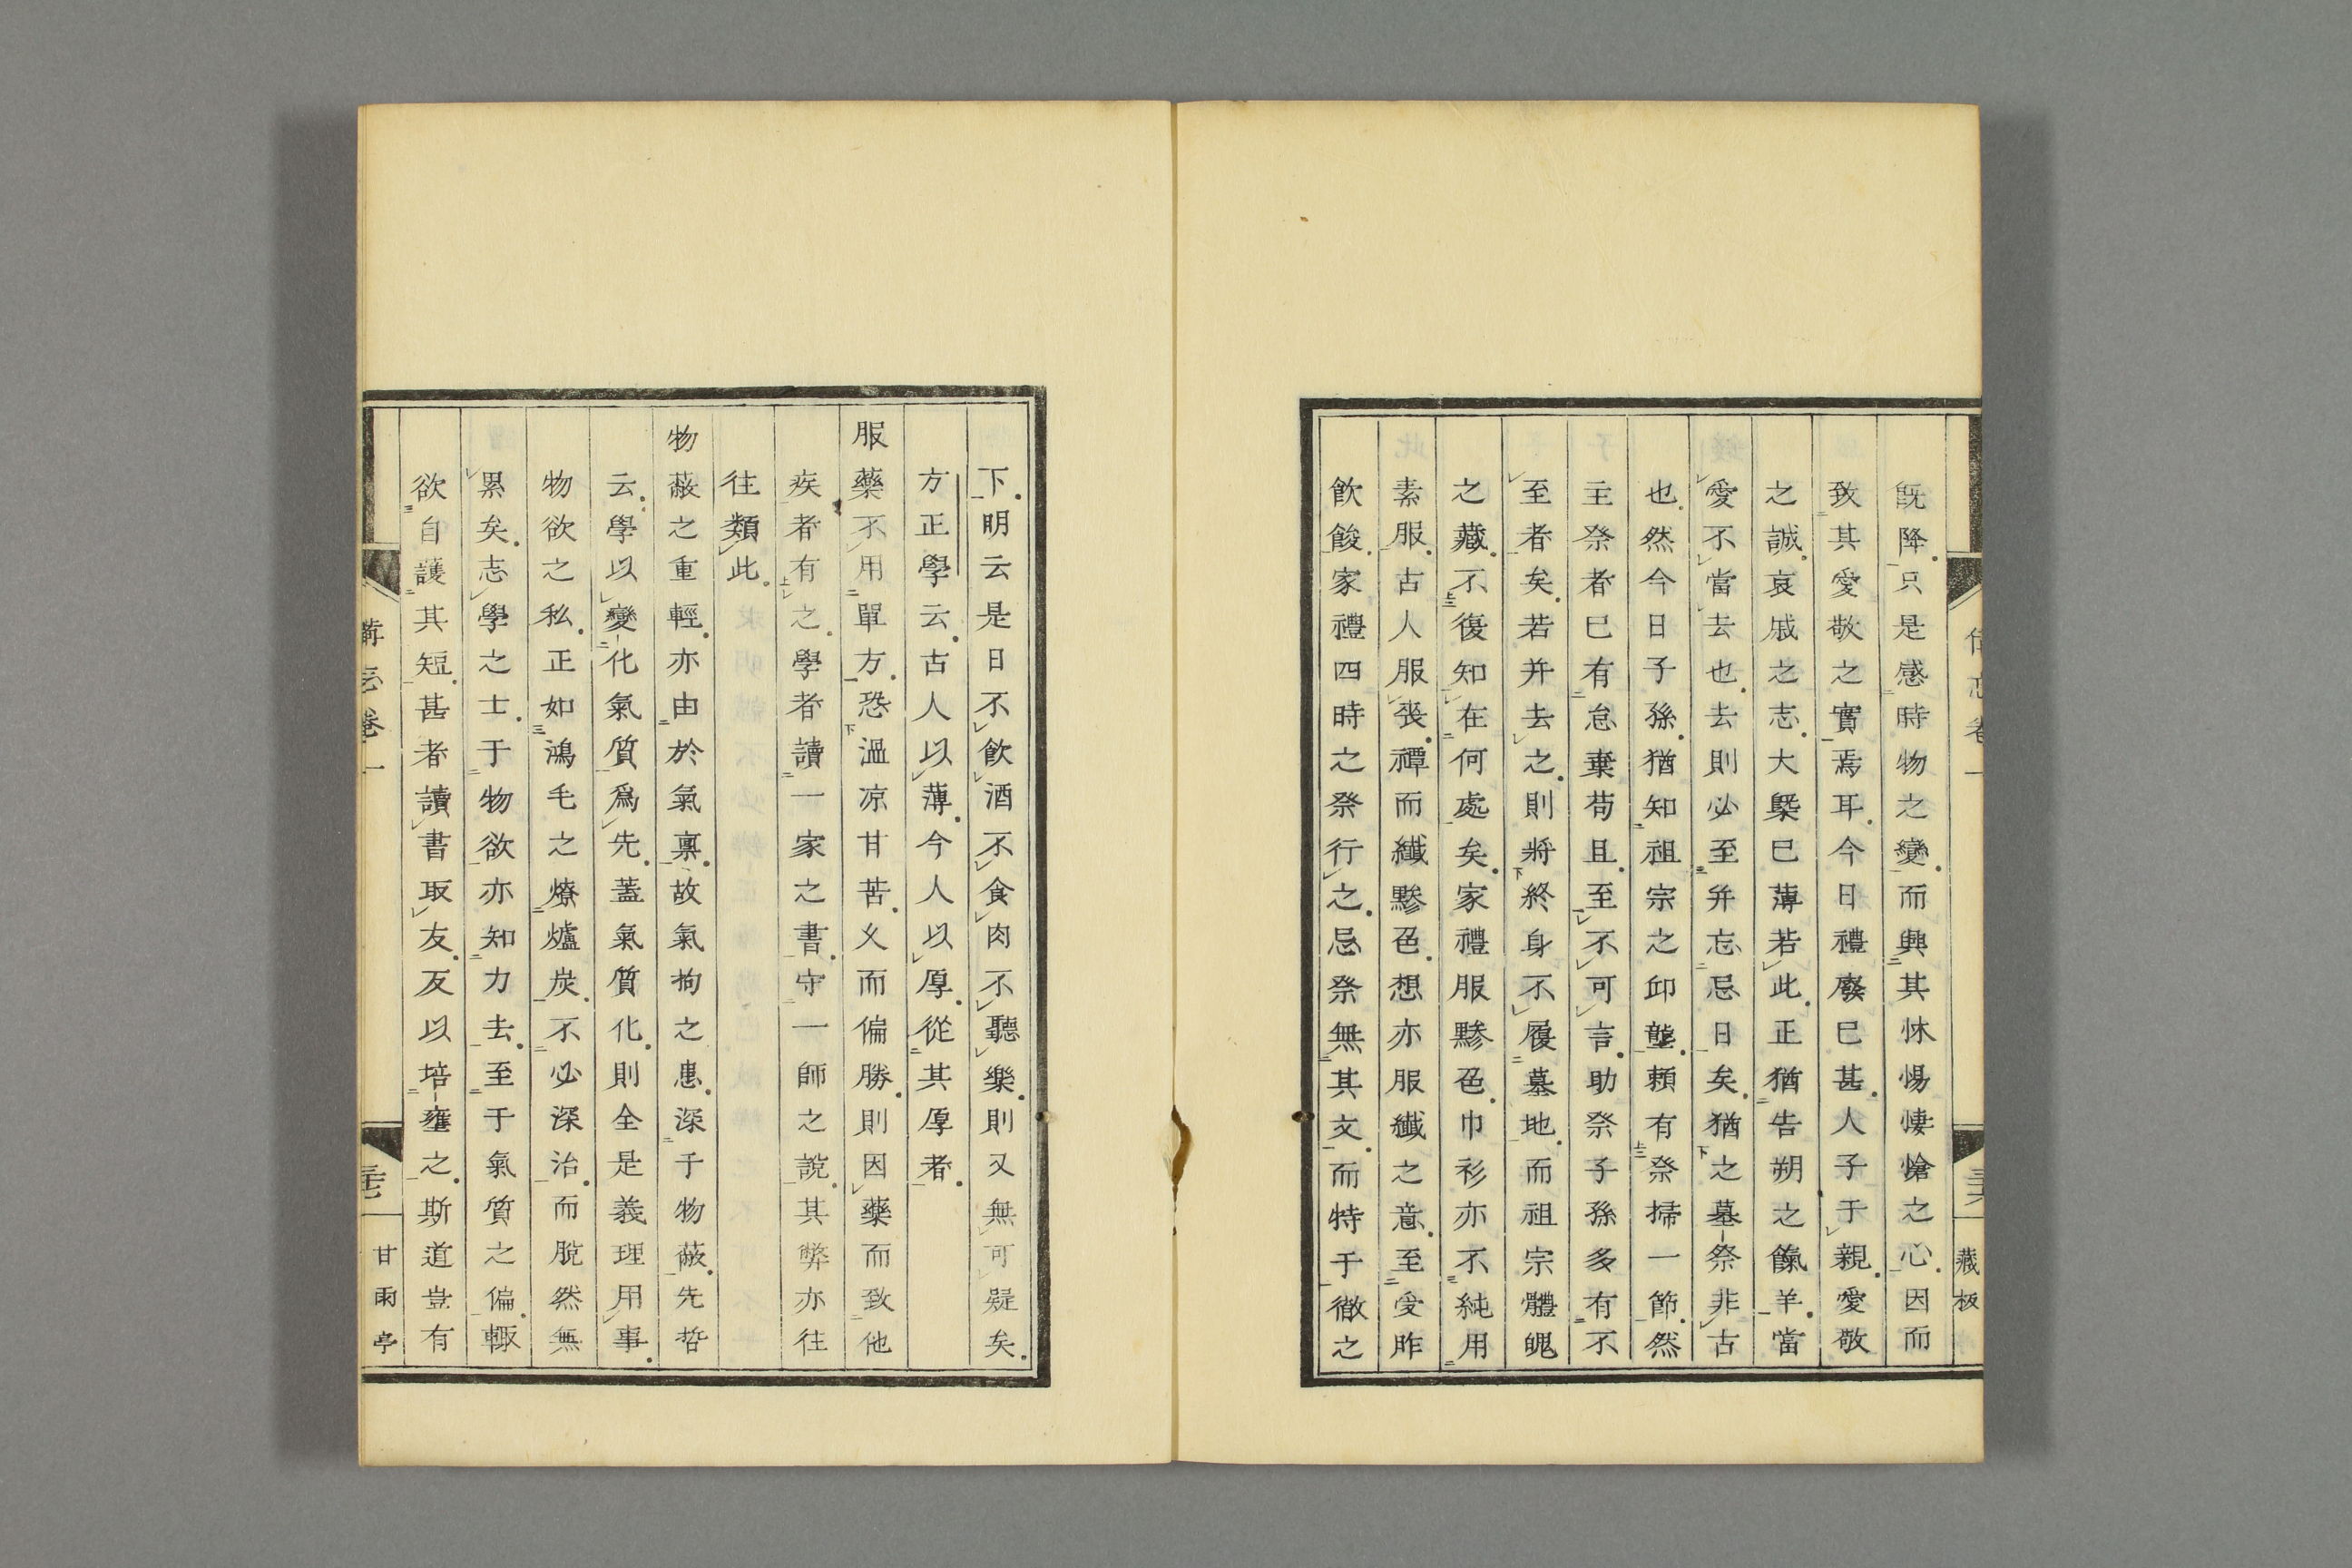 既降只是感時物之變而興其怵惕悽愴之心因而
致其愛敬之實焉耳今日禮廢已甚人子于親愛敬
之誠哀戚之志大槩已薄若此正猶告朔之餼羊當
愛不當去也去則必至弁忘忌日矣猶之墓祭非古
也然今日子孫猶知祖宗之邱壟頼有祭掃一節然
主祭者已有怠棄苟且至不可言助祭子孫多有不
至者矣若并去之則將終身不履墓地而祖宗體魄
之藏不復知在何處矣家禮服黲色巾衫亦不純用
素服古人服喪禫而纖黲色想亦服纖之意至受胙
飲餕家禮四時之祭行之忌祭無其文而特于徹之
藏板
下明云是日不飲酒不食肉不聽樂則又無可疑矣
方正學云古人以薄今人以厚從其厚者
服藥不用單方恐溫凉甘苦乂而偏勝則因藥而致他
疾者有之學者讀一家之書守一師之說其弊亦往
往類此
物蔽之重輕亦由於氣禀故氣拘之患深于物蔽先哲
云學以變化氣質爲先蓋氣質化則全是義理用事
物欲之私正如鴻毛之燎爐炭不必深治而脫然無
累矣志學之士于物欲亦知力去至于氣質之偏輙
欲自護其短甚者讀書取友反以培壅之斯道豈有
備忘卷一
甘雨亭